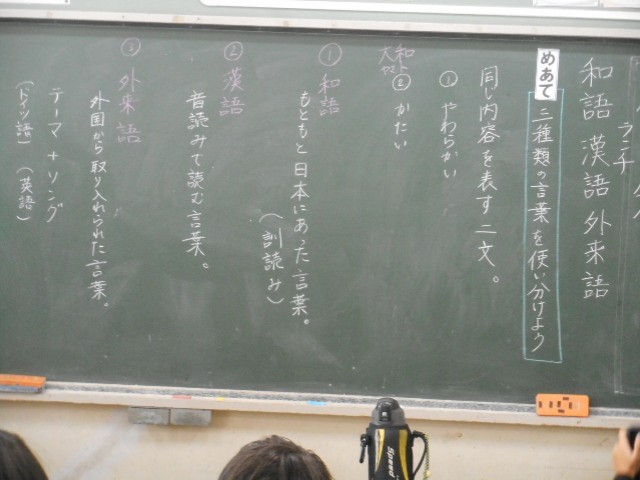 ランチ
和語 漢語 外来語
めあて 三種類の言葉を使い分けよう
同じ内容を表す二文。
① やわらかい
② かたい
① 和語
もともと日本にあった言葉。
(訓読み)
② 漢語
音読みで読む言葉。
③ 外来語
外国から取り入れられた言葉。
テーマ+ソング
(ドイツ語) (英語)
Speed